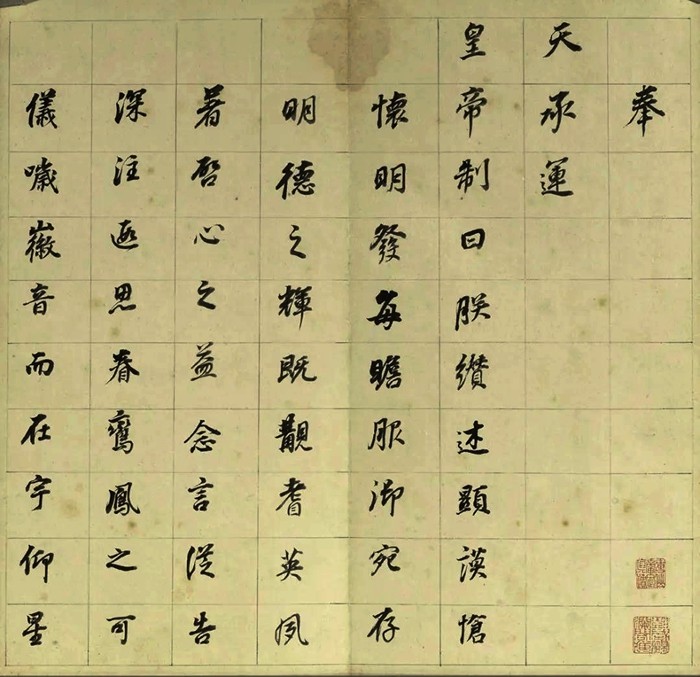 奉
天承運
皇帝制曰朕纘述顯謨愴
懷明發每瞻服御宛存
明德之輝既覲耆英夙
著啓心之益念言從告
深注遐思眷鸞鳳之可
儀噦徽音而在宇仰星